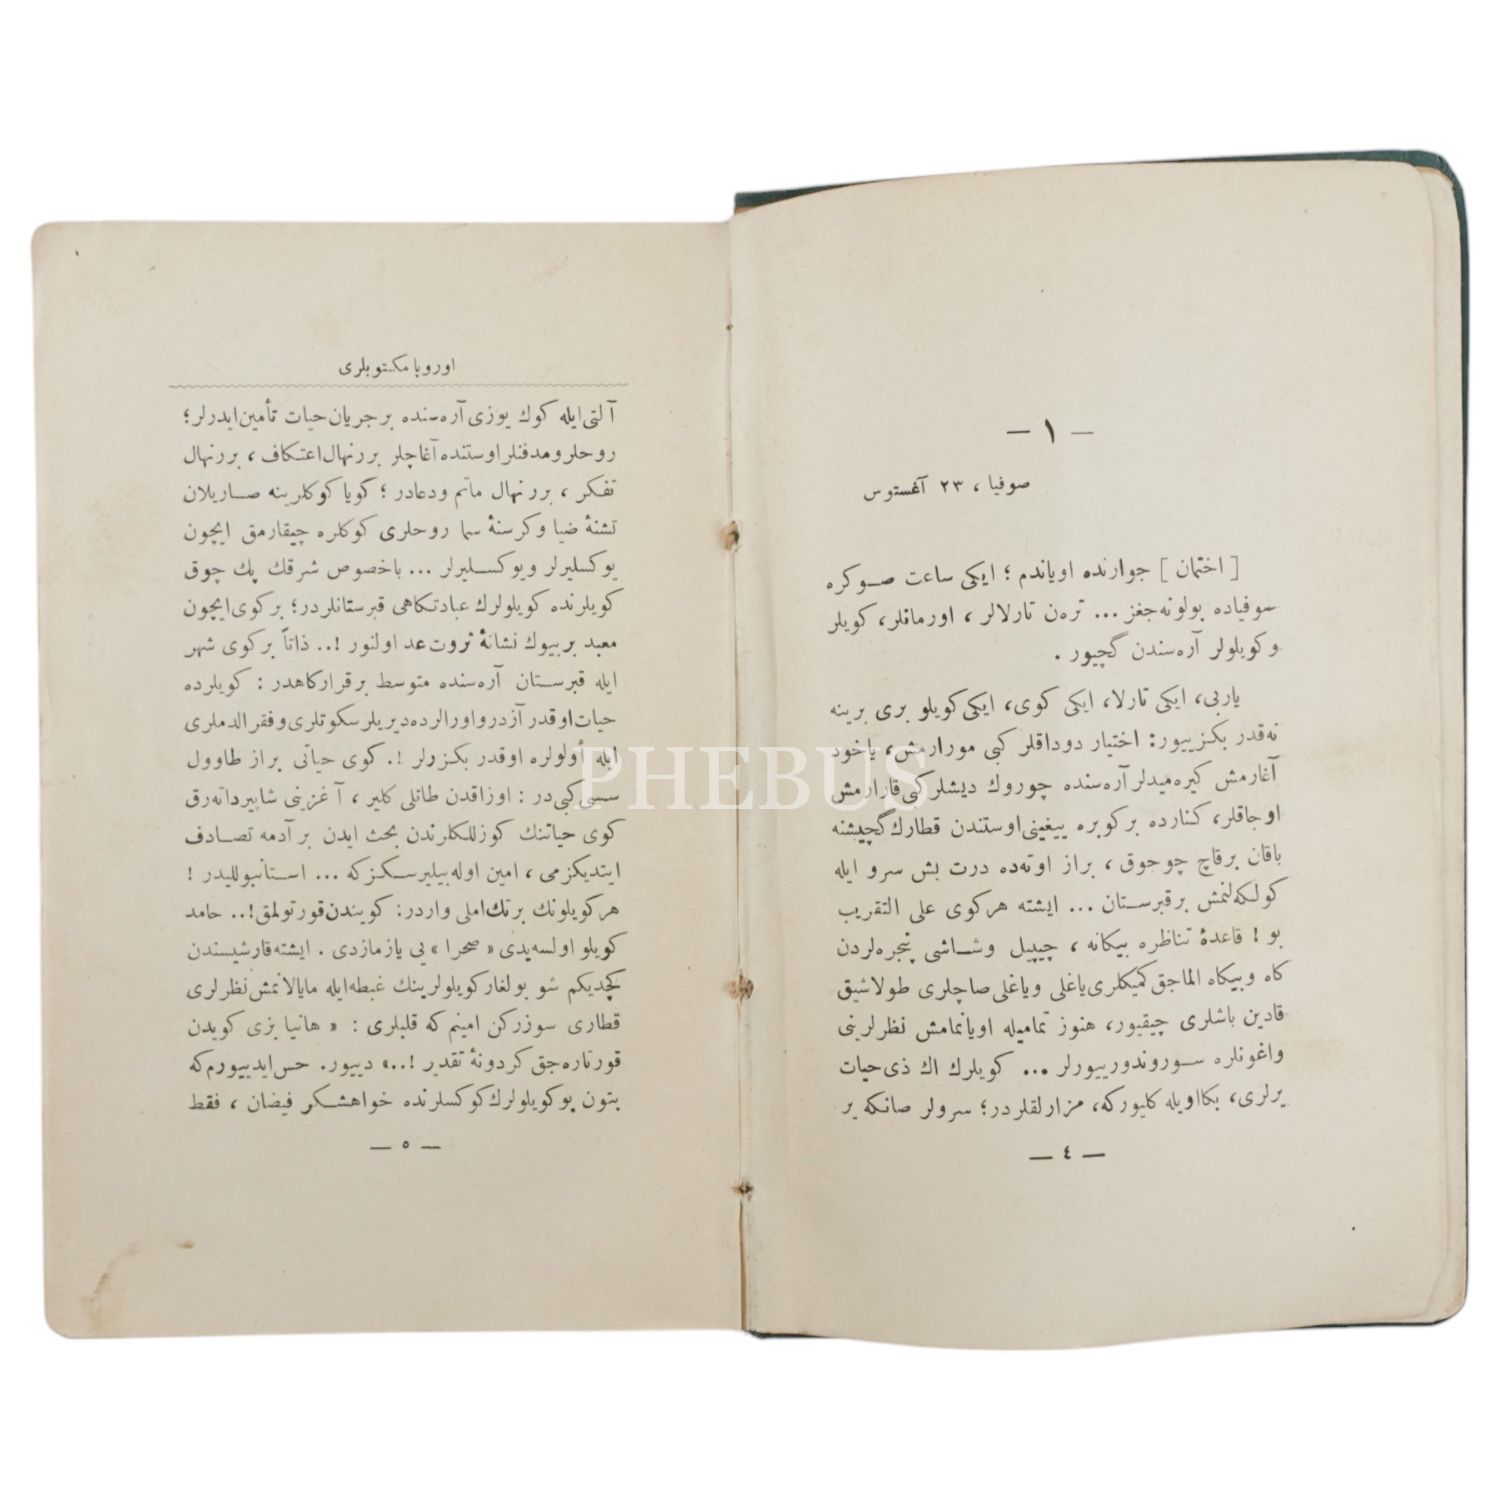 — ١ —
صوفيا ، ٢٣ آغستوس
[ اختمان ] جوارنده اوياندم ؛ ايكى ساعت صـوكره
سوفياده بولونه‌جغز ... ترەن تارلالر ، اورمانلر، كويلر
و كويلولر آره‌سندن گچيور .
ياربى، ايكى تارلا، ايكى كوى، ايكى كويلو برى برينه
نه‌قدر بكزييور: اختيار دوداقلر كبى مورارمش، ياخود
آغارمش كيره‌ميدلر آره‌سنده چوروك ديشلركبى قارارمش
اوجاقلر، كنارده بر كوبره ييغينى اوستندن قطارك گچيشنه
باقان بر قاچ چوجوق ، براز اوته‌ده درت بش سرو ايله
كولكه‌لنمش بر قبرستان ... ايشته هر كوى على التقريب
بو ! قاعدۀ تناظره بيكانه ، چيپيل وشـاشى پنجره‌لردن
كاه وبيكاه الماجق كميكلرى ياغلى وياغلى صاچلرى طولاشيق
قادين باشلرى چيقيور، هنوز تماميله اويانمامش نظرلرينى
واغونلره سـوروندورييورلر ... كويلرك اك ذى حيات
يرلرى، بكا اويله كليوركه، مزارلقلردر؛ سرولر صانكه ير
— ٤ —
اوروپا مكتوبلرى
آلتى ايله كوك يوزى آره‌سنده بر جريان حيات تأمين ايدرلر؛
روحلر و مدفنلر اوستنده آغاچلر بر رنهال اعتـكاف ، بر رنهال
تفكر ، بر رنهال ماتم ودعادر ؛ كويا كوكلرينه صـاريلان
تشنۀ ضيا وكرسنۀ سما روحلرى كوكلره چيقارمق ايچون
يوكسليرلر ويوكسـليرلر ... باخصوص شرقك پك چوق
كويلرنده كويلولرك عبادتكاهى قبرستانلردر؛ بر كوى ايچون
معبد بر بيوك نشانۀ ثروت عد اولنور !.. ذاتاً بر كوى شهر
ايله قبرسـتان آره‌سنده متوسط بر قراركاهدر : كويلرده
حيات اوقدر آزدر واورالرده ديريلر سكوتلرى وفقر الدملرى
ايله أولولره اوقدر بكزرلر !. كوى حياتى براز طاوول
سسى كبى در : اوزاقدن طاتلى كلير ، آغزينى شاپيرداته‌رق
كوى حياتنك كوزللكلرندن بحث ايدن بر آدمه تصادف
ايتديكزمى ، امين اوله‌بيليرسـكزكه ... اسـتانبولليدر !
هر كويلونك بر تك املى واردر: كويندن قورتولمق!.. حامد
كويلو اولسه‌يدى « صحرا » يى يازمازدى . ايشته قارشيسندن
گچديكم شو بولغار كويلولرينك غبطه ايله مايالانمش نظرلرى
قطارى سوزركن امينم كه قلبلرى : « هانيا بزى كويدن
قورتاره‌جق كردونۀ تقدير !..» دييور. حس ايدييورم كه
بتون بو كويلولرك كوكسلرنده خواهشكر فيضان ، فقط
— ٥ —
PHEBUS